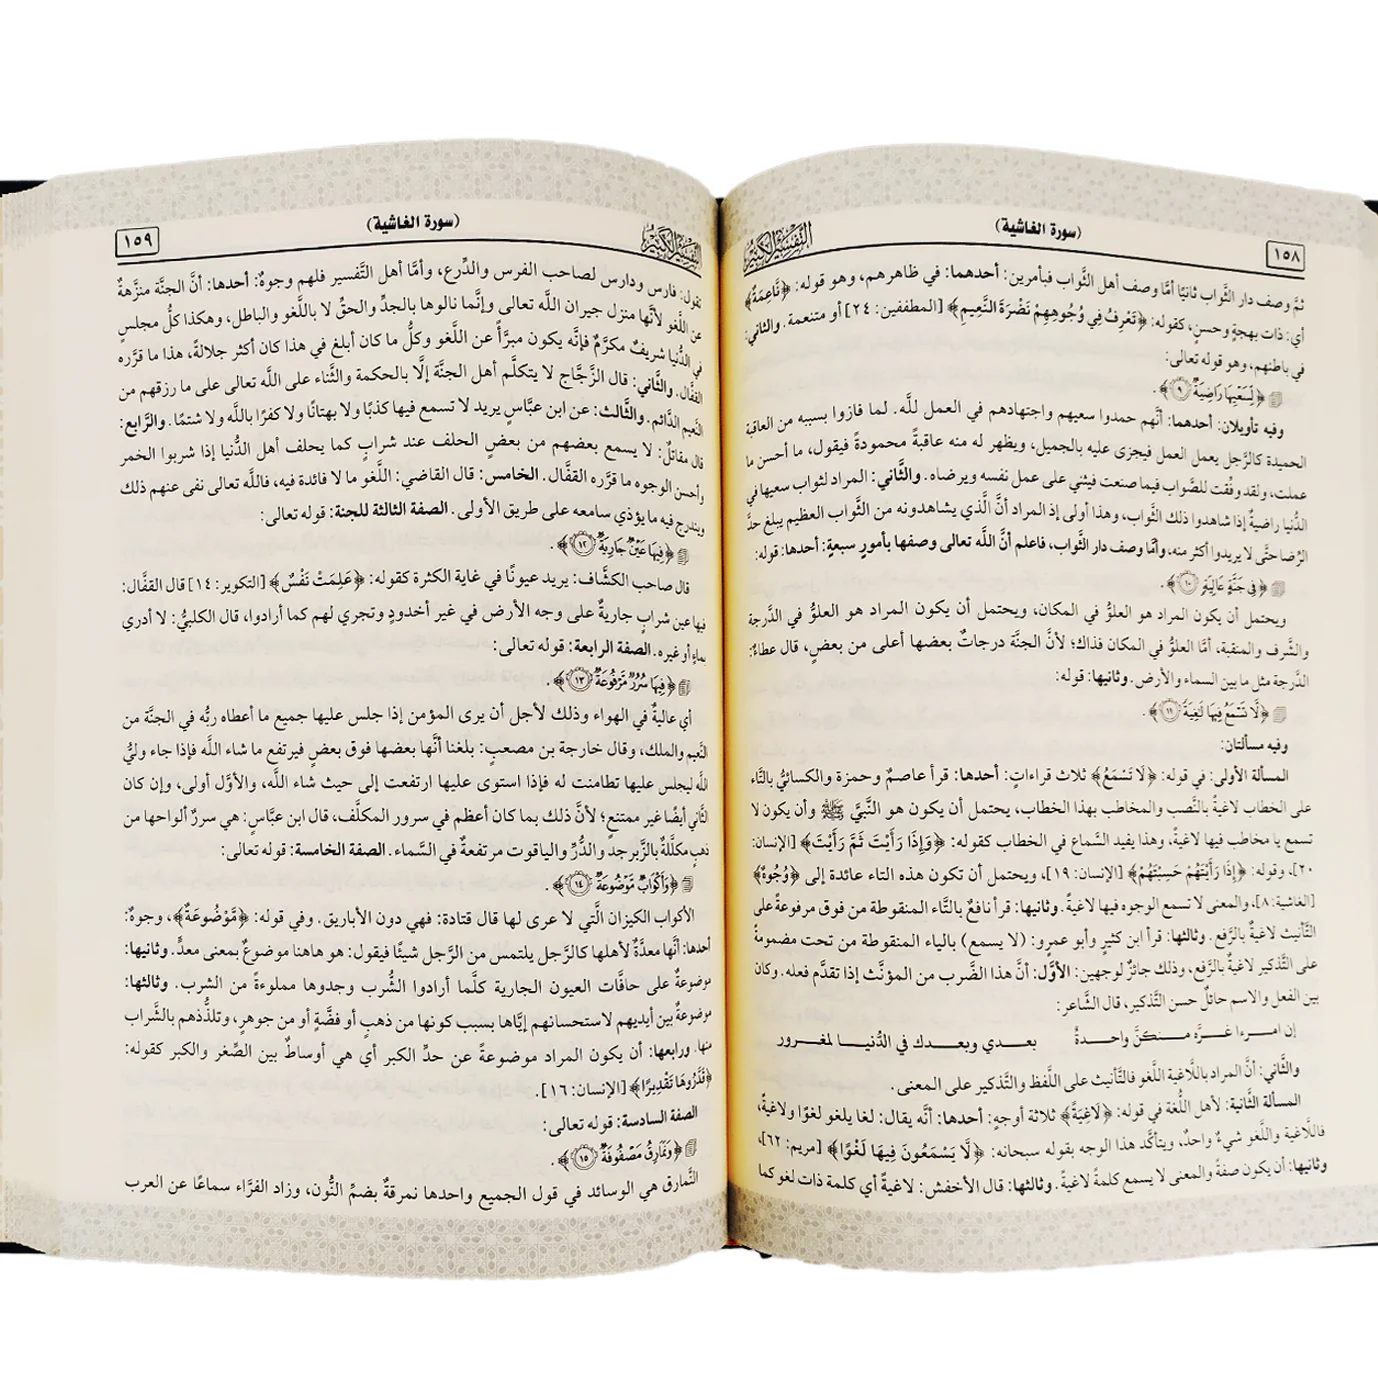 ١٥٨
(سورة الغاشية)
التفسير الكبير
ثمَّ وصف دار الثَّواب ثانيًا أمَّا وصف أهل الثَّواب فبأمرين: أحدهما: في ظاهرهم، وهو قوله: ﴿نَّاعِمَةٌ﴾
أي: ذات بهجةٍ وحسنٍ، كقوله: ﴿تَعْرِفُ فِي وُجُوهِهِمْ نَضْرَةَ النَّعِيمِ﴾ [المطففين: ٢٤] أو متنعمة. والثاني:
في باطنهم، وهو قوله تعالى:
﴿لِسَعْيِهَا رَاضِيَةٌ ٩﴾.
وفيه تأويلان: أحدهما: أنَّهم حمدوا سعيهم واجتهادهم في العمل للَّه. لما فازوا بسببه من العاقبة
الحميدة كالرَّجل يعمل العمل فيجزى عليه بالجميل، ويظهر له منه عاقبةٌ محمودةٌ فيقول، ما أحسن ما
عملت، ولقد وفِّقت للصَّواب فيما صنعت فيثني على عمل نفسه ويرضاه. والثَّاني: المراد لثواب سعيها في
الدُّنيا راضيةٌ إذا شاهدوا ذلك الثَّواب، وهذا أولى إذ المراد أنَّ الَّذي يشاهدونه من الثَّواب العظيم يبلغ حدَّ
الرِّضا حتَّى لا يريدوا أكثر منه، وأمَّا وصف دار الثَّواب، فاعلم أنَّ اللَّه تعالى وصفها بأمورٍ سبعةٍ: أحدها: قوله:
﴿فِي جَنَّةٍ عَالِيَةٍ ١٠﴾.
ويحتمل أن يكون المراد هو العلوُّ في المكان، ويحتمل أن يكون المراد هو العلوُّ في الدَّرجة
والشَّرف والمنقبة، أمَّا العلوُّ في المكان فذاك؛ لأنَّ الجنَّة درجاتٌ بعضها أعلى من بعضٍ، قال عطاءٌ:
الدَّرجة مثل ما بين السماء والأرض. وثانيها: قوله:
﴿لَّا تَسْمَعُ فِيهَا لَٰغِيَةً ١١﴾.
وفيه مسألتان:
المسألة الأولى: في قوله: ﴿لَا تَسْمَعُ﴾ ثلاث قراءاتٍ: أحدها: قرأ عاصمٌ وحمزة والكسائيُّ بالتَّاء
على الخطاب لاغيةً بالنَّصب والمخاطب بهذا الخطاب، يحتمل أن يكون هو النَّبيَّ ﷺ وأن يكون لا
تسمع يا مخاطب فيها لاغيةً، وهذا يفيد السَّماع في الخطاب كقوله: ﴿وَإِذَا رَأَيْتَ ثَمَّ رَأَيْتَ﴾ [الإنسان:
٢٠]، وقوله: ﴿إِذَا رَأَيْتَهُمْ حَسِبْتَهُمْ﴾ [الإنسان: ١٩]، ويحتمل أن تكون هذه التاء عائدة إلى ﴿وُجُوهٌ﴾
[الغاشية: ٨]، والمعنى لا تسمع الوجوه فيها لاغيةً. وثانيها: قرأ نافعٌ بالتَّاء المنقوطة من فوق مرفوعةً على
التَّأنيث لاغيةٌ بالرَّفع. وثالثها: قرأ ابن كثيرٍ وأبو عمرٍو: (لا يسمع) بالياء المنقوطة من تحت مضمومةً
على التَّذكير لاغيةٌ بالرَّفع، وذلك جائزٌ لوجهين: الأوَّل: أنَّ هذا الضَّرب من المؤنَّث إذا تقدَّم فعله. وكان
بين الفعل والاسم حائلٌ حسن التَّذكير، قال الشَّاعر:
إن امرءا غرَّه منكنَّ واحدةٌ بعدي وبعدك في الدُّنيا لمغرور
والثَّاني: أنَّ المراد باللَّاغية اللَّغو فالتَّأنيث على اللَّفظ والتَّذكير على المعنى.
المسألة الثَّانية: لأهل اللُّغة في قوله: ﴿لَاغِيَةً﴾ ثلاثة أوجهٍ: أحدها: أنَّه يقال: لغا يلغو لغوًا ولاغيةً،
فاللَّاغية واللَّغو شيءٌ واحدٌ، ويتأكَّد هذا الوجه بقوله سبحانه: ﴿لَّا يَسْمَعُونَ فِيهَا لَغْوًا﴾ [مريم: ٦٢]،
وثانيها: أن يكون صفةً والمعنى لا يسمع كلمةً لاغيةً. وثالثها: قال الأخفش: لاغيةٌ أي كلمة ذات لغو كما
التفسير الكبير
(سورة الغاشية)
١٥٩
تقول: فارس ودارس لصاحب الفرس والدِّرع، وأمَّا أهل التَّفسير فلهم وجوهٌ: أحدها: أنَّ الجنَّة منزَّهةٌ
عن اللَّغو لأنَّها منزل جيران اللَّه تعالى وإنَّما نالوها بالجدِّ والحقِّ لا باللَّغو والباطل، وهكذا كلُّ مجلسٍ
في الدُّنيا شريفٌ مكرَّمٌ فإنَّه يكون مبرَّأً عن اللَّغو وكلُّ ما كان أبلغ في هذا كان أكثر جلالةً، هذا ما قرَّره
القفَّال. والثَّاني: قال الزَّجَّاج لا يتكلَّم أهل الجنَّة إلَّا بالحكمة والثَّناء على اللَّه تعالى على ما رزقهم من
النَّعيم الدَّائم. والثَّالث: عن ابن عبَّاسٍ يريد لا تسمع فيها كذبًا ولا بهتانًا ولا كفرًا باللَّه ولا شتمًا. والرَّابع:
قال مقاتلٌ: لا يسمع بعضهم من بعضٍ الحلف عند شرابٍ كما يحلف أهل الدُّنيا إذا شربوا الخمر
وأحسن الوجوه ما قرَّره القفَّال. الخامس: قال القاضي: اللَّغو ما لا فائدة فيه، فاللَّه تعالى نفى عنهم ذلك
ويندرج فيه ما يؤذي سامعه على طريق الأولى. الصفة الثالثة للجنة: قوله تعالى:
﴿فِيهَا عَيْنٌ جَارِيَةٌ ١٢﴾.
قال صاحب الكشَّاف: يريد عيونًا في غاية الكثرة كقوله: ﴿عَلِمَتْ نَفْسٌ﴾ [التكوير: ١٤] قال القفَّال:
فيها عين شرابٍ جاريةٌ على وجه الأرض في غير أخدودٍ وتجري لهم كما أرادوا، قال الكلبيُّ: لا أدري
بماءٍ أو غيره. الصفة الرابعة: قوله تعالى:
﴿فِيهَا سُرُرٌ مَّرْفُوعَةٌ ١٣﴾.
أي عاليةٌ في الهواء وذلك لأجل أن يرى المؤمن إذا جلس عليها جميع ما أعطاه ربُّه في الجنَّة من
النَّعيم والملك، وقال خارجة بن مصعبٍ: بلغنا أنَّها بعضها فوق بعضٍ فيرتفع ما شاء اللَّه فإذا جاء وليُّ
اللَّه ليجلس عليها تطامنت له فإذا استوى عليها ارتفعت إلى حيث شاء اللَّه، والأوَّل أولى، وإن كان
الثَّاني أيضًا غير ممتنعٍ؛ لأنَّ ذلك بما كان أعظم في سرور المكلَّف، قال ابن عبَّاسٍ: هي سررٌ ألواحها من
ذهبٍ مكلَّلةٌ بالزَّبرجد والدُّرِّ والياقوت مرتفعةٌ في السَّماء. الصفة الخامسة: قوله تعالى:
﴿وَأَكْوَابٌ مَّوْضُوعَةٌ ١٤﴾.
الأكواب الكيزان الَّتي لا عرى لها قال قتادة: فهي دون الأباريق. وفي قوله: ﴿مَّوْضُوعَةٌ﴾، وجوهٌ:
أحدها: أنَّها معدَّةٌ لأهلها كالرَّجل يلتمس من الرَّجل شيئًا فيقول: هو هاهنا موضوعٌ بمعنى معدٍّ. وثانيها:
موضوعةٌ على حافَّات العيون الجارية كلَّما أرادوا الشُّرب وجدوها مملوءةً من الشرب. وثالثها:
موضوعةٌ بين أيديهم لاستحسانهم إيَّاها بسبب كونها من ذهبٍ أو فضَّةٍ أو من جوهرٍ، وتلذُّذهم بالشَّراب
منها. ورابعها: أن يكون المراد موضوعةً عن حدِّ الكبر أي هي أوساطٌ بين الصِّغر والكبر كقوله:
﴿قَدَّرُوهَا تَقْدِيرًا﴾ [الإنسان: ١٦].
الصفة السادسة: قوله تعالى:
﴿وَنَمَارِقُ مَصْفُوفَةٌ ١٥﴾.
النَّمارق هي الوسائد في قول الجميع واحدها نمرقةٌ بضمِّ النُّون، وزاد الفرَّاء سماعًا عن العرب